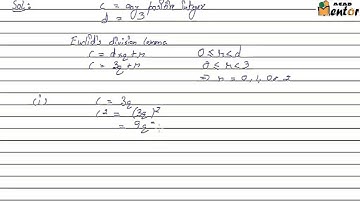 Sol:- c = any positive integer
d = 3
Euclid's division lemma
c = d×q+r 0 ≤ r < d
c = 3q+r 0 ≤ r < 3
⇒ r = 0, 1, or 2
(i) c = 3q
c² = (3q)²
= 9q²
READ
Mentor